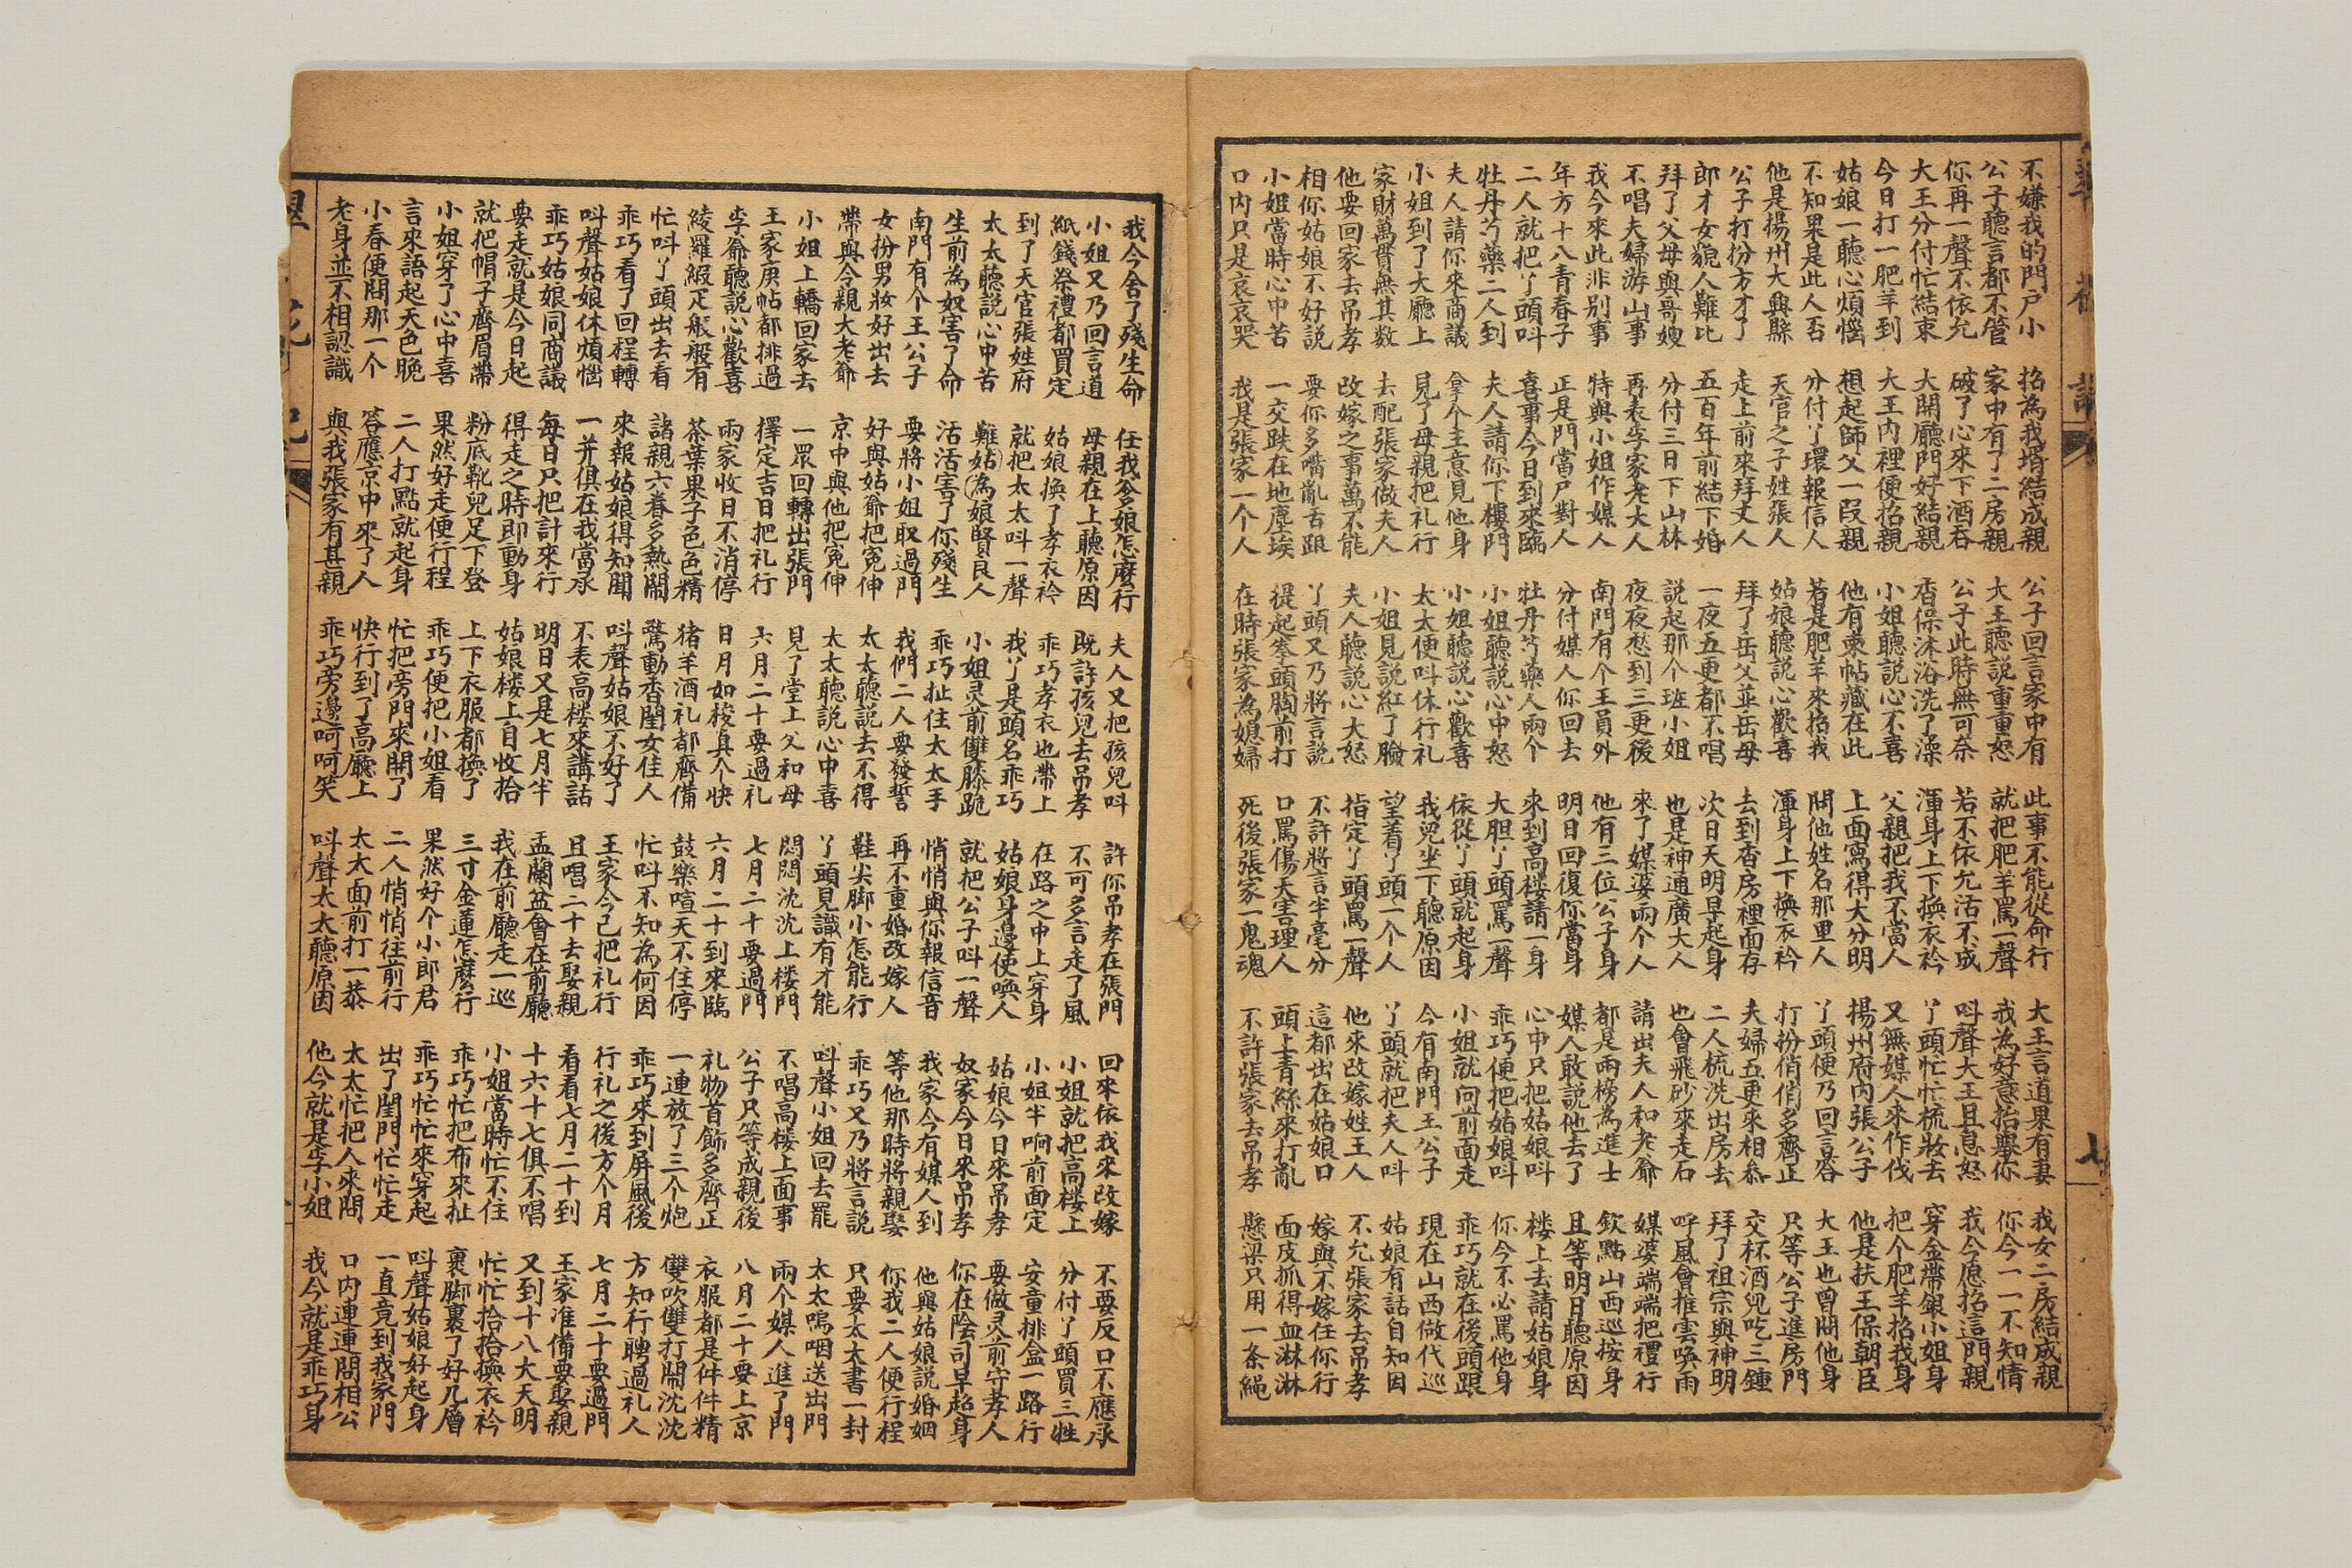 不嫌我的門户小 招為我壻結成親 公子回言家中有 此事不能從命行 大王言道果有妻 我女二房結成親
公子聽言都不管 家中有了二房親 大王聽説重重怒 就把肥羊罵一聲 我為好意抬舉你 你今一一不知情
你再一聲不依允 破了心來下酒吞 公子此時無可奈 若不依允活不成 呌聲大王且息怒 我今愿招這門親
大王分付忙結束 大開廳門好結親 香保沐浴洗了澡 渾身上下換衣衿 丫頭忙忙梳妝去 穿金帶銀小姐身
今日打一肥羊到 大王内裡便招親 小姐聽説心不喜 父親把我不當人 又無媒人來作伐 把个肥羊招我身
姑娘一聽心煩惱 想起師父一叚親 他有柬帖藏在此 上面寫得大分明 揚州府内張公子 他是扶王保朝臣
不知果是此人否 分付丫環報信人 若是肥羊來招我 問他姓名那里人 丫頭便乃回言答 大王也曾問他身
他是揚州大興縣 天官之子姓張人 姑娘聽説心歡喜 渾身上下換衣衿 打扮俏俏多齊正 只等公子進房門
公子打扮方才了 走上前來拜丈人 拜了岳父並岳母 去到香房裡面存 夫婦五更來相叅 交杯酒兒吃三鍾
郎才女貌人難比 五百年前結下婚 一夜五更都不唱 次日天明早起身 二人梳洗出房去 拜了祖宗與神明
拜了父母與哥嫂 分付三日下山林 説起那个班小姐 也是神通廣大人 也會飛砂來走石 呼風會推雲喚雨
不唱夫婦游山事 再表李家老大人 夜夜愁到三更後 來了媒婆兩个人 請出夫人和老爺 媒婆端端把禮行
我今來此非别事 特與小姐作媒人 南門有个王員外 他有三位公子身 都是兩榜為進士 欽點山西巡按身
年方十八青春子 正是門當戶對人 分付媒人你回去 明日回復你當身 媒人敢説他去了 且等明日聽原因
二人就把丫頭呌 喜事今日到來臨 牡丹芍藥人兩个 來到高樓請一身 心中只把姑娘呌 楼上去請姑娘身
牡丹芍藥二人到 夫人請你下樓門 小姐聽説心中怒 大胆丫頭罵一聲 乖巧便把姑娘呌 你今不必罵他身
夫人請你來商議 拿个主意見他身 小姐聽説心歡喜 依從丫頭就起身 小姐就向前面走 乖巧就在後頭跟
小姐到了大廳上 見了母親把礼行 太太便呌休行礼 我兒坐下聽原因 今有南門王公子 現在山西做代巡
家財萬貫無其数 去配張家做夫人 小姐見説紅了臉 望着丫頭一个人 丫頭就把夫人呌 姑娘有話自知因
他要回家去吊孝 改嫁之事萬不能 夫人聽説心大怒 指定丫頭罵一聲 他來改嫁姓王人 不允張家去吊孝
相你姑娘不好説 要你多嘴亂舌跟 丫頭又乃將言説 不許將言半毫分 這都出在姑娘口 嫁與不嫁任你行
小姐當時心中苦 一交跌在地塵埃 提起拳頭胸前打 口罵傷天害理人 頭上青絲來打亂 面皮抓得血淋淋
口内只是哀哀哭 我是張家一个人 在時張家為媳婦 死後張家一鬼魂 不許張家去吊孝 懸梁只用一条繩
七
我今舍了殘生命 任我爹娘怎麽行 夫人又把孩兒呌 許你吊孝在張門 回來依我來改嫁 不要反口不應承
小姐又乃回言道 母親在上聽原因 既許孩兒去吊孝 不可多言走了風 小姐就把高楼上 分付丫頭買三牲
紙錢祭禮都買定 姑娘換了孝衣衿 乖巧孝衣也帶上 在路之中上穿身 小姐半晌前面定 安童排盒一路行
到了天官張姓府 就把太太呌一聲 我丫是頭名乖巧 姑娘身邊使喚人 姑娘今日來吊孝 要做灵前守孝人
太太聽説心中苦 難姑為娘賢良人 小姐灵前雙膝跪 就把公子呌一聲 奴家今日來吊孝 你在陰司早超身
生前為奴害了命 活活害了你殘生 乖巧扯住太太手 悄悄與你報信音 我家今有媒人到 他與姑娘説婚姻
南門有个王公子 要將小姐取過門 我們二人要發誓 再不重婚改嫁人 等他那時將親娶 你我二人便行程
女扮男妝好出去 好與姑爺把寃伸 太太聽説去不得 鞋尖脚小怎能行 乖巧又乃將言説 只要太太書一封
帶與令親大老爺 京中與他把寃伸 太太聽説心中喜 丫頭見識有才能 呌聲小姐回去罷 太太嗚咽送出門
小姐上轎回家去 一眾回轉出張門 見了堂上父和母 悶悶沈沈上楼門 不唱高楼上面事 兩个媒人進了門
王家庚帖都排過 擇定吉日把礼行 六月二十要過礼 七月二十要過門 公子只等成親後 八月二十要上京
李爺聽説心歡喜 兩家收日不消停 日月如梭真个快 六月二十到來臨 礼物首飾多齊正 衣服都是件件精
綾羅緞疋般般有 茶葉果子色色精 猪羊酒礼都齊備 鼓樂喧天不住停 一連放了三个炮 雙吹雙打鬧沈沈
忙呌丫頭出去看 諸親六眷多熱鬧 驚動香閨女佳人 忙呌不知為何因 乖巧來到屏風後 方知行聘過礼人
乖巧看了回程轉 來報姑娘得知聞 呌聲姑娘不好了 王家今已把礼行 行礼之後方个月 七月二十要過門
呌聲姑娘休煩惱 一并俱在我當承 不表高楼來講話 且唱二十去娶親 看看七月二十到 王家准備要娶親
乖巧姑娘同商議 每日只把計來行 明日又是七月半 盂蘭盆會在前廳 十六十七俱不唱 又到十八大天明
要走就是今日起 得走之時即動身 姑娘楼上自收拾 我在前廳走一巡 小姐當時忙不住 忙忙拾拾換衣衿
就把帽子齊眉帶 粉底靴兒足下登 上下衣服都換了 三寸金蓮怎麽行 乖巧忙把布來扯 裹脚裹了好几層
小姐穿了心中喜 果然好走便行程 乖巧便把小姐看 果然好个小郎君 乖巧忙忙來穿起 呌聲姑娘好起身
言來語起天色晚 二人打點就起身 忙把旁門來開了 二人悄悄往前行 出了閨門忙忙走 一直竟到我家門
小春便問那一个 答應京中來了人 快行到了高廳上 太太面前打一恭 太太忙把人來問 口内連連問相公
老身並不相認識 與我張家有甚親 乖巧旁邊呵呵笑 呌聲太太聽原因 他今就是李小姐 我今就是乖巧身